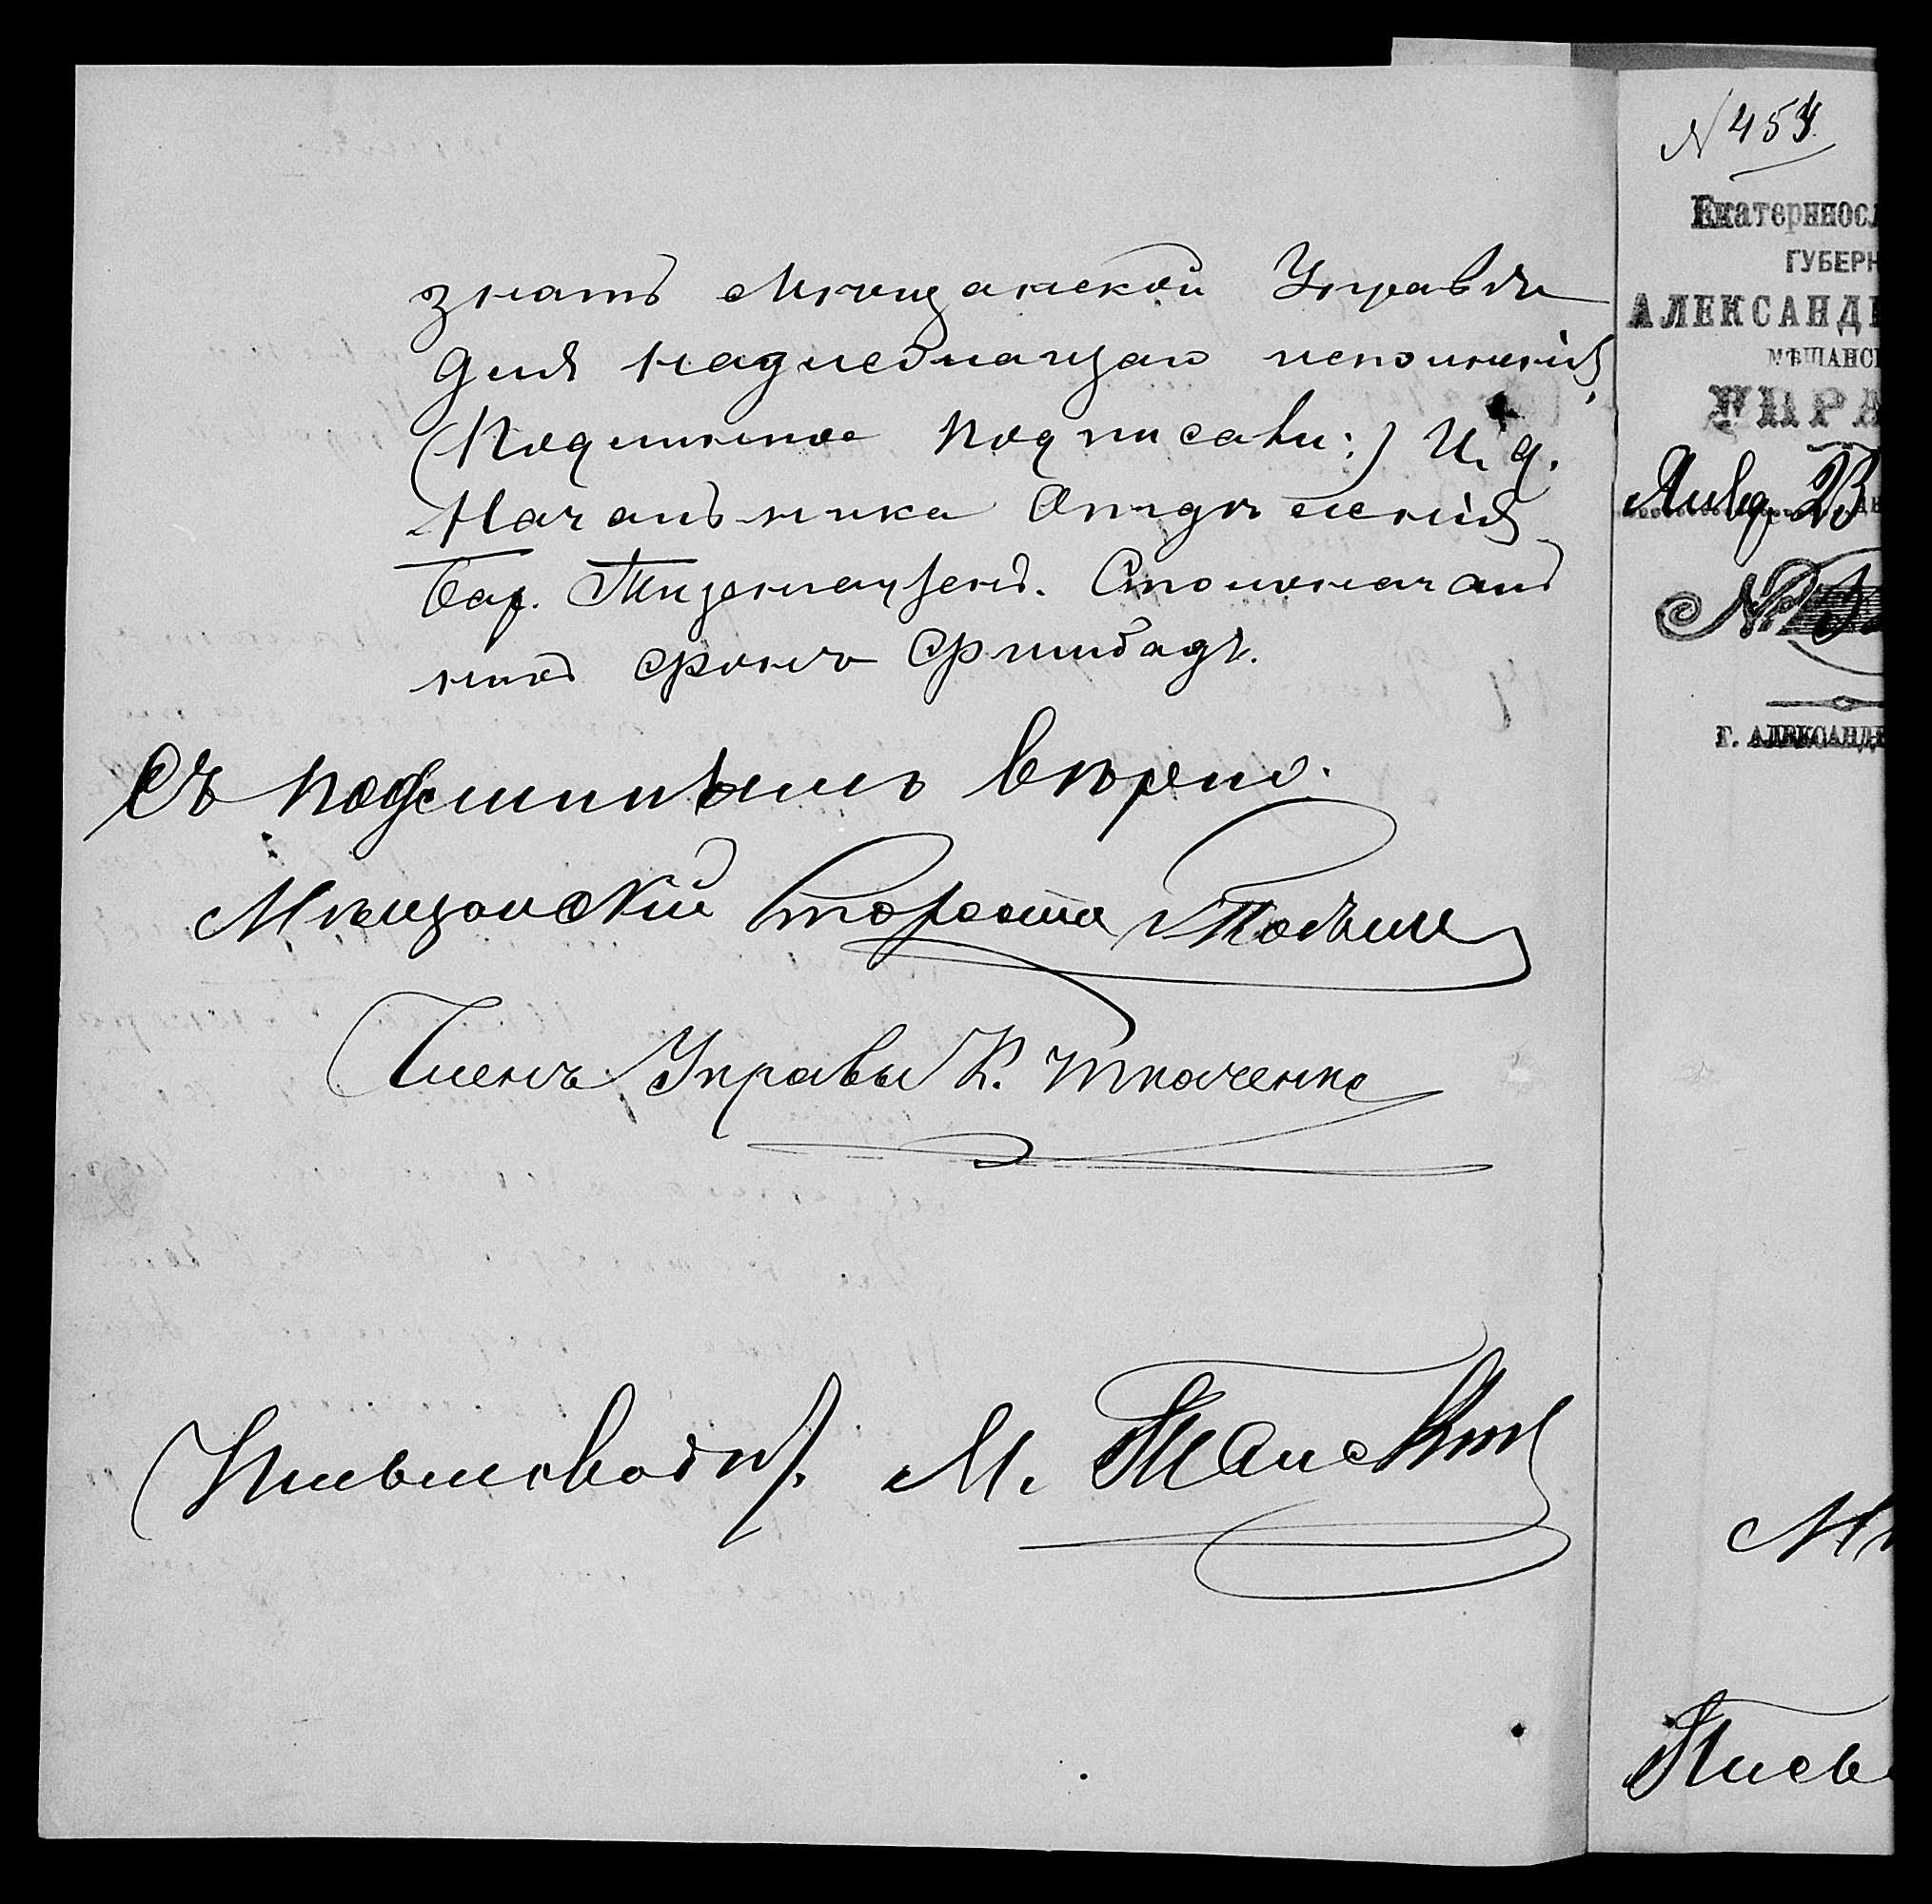 знать Мѣщанской Управѣ
для надлежащаго исполненія
(Подлинное подписали:) И. д.
Начальника Отдѣленія
Бар. Тизенгаузенъ. Столоначаль
никъ фонъ
Съ подлиннымъ вѣрно.
Мѣщанскій Староста
Членъ Управы К. Ткаченко
М.
N 454
Екатеринос
ГУБЕРН
АЛЕКСАНД
МѢЩАНС
УПРА
Янв. 23
№
Г. АЛЕКСАНД